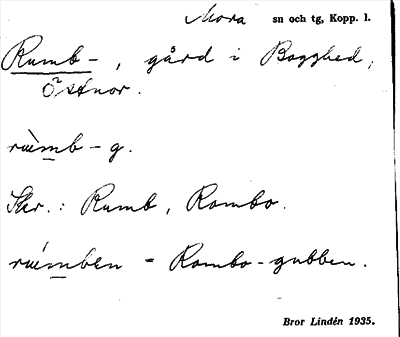 Mora sn och tg, Kopp. l.
Rumb-, gård i Bogghed,
Östnor.
rùmb-g.
Skr.: Rumb, Rombo.
rúmben = Rombo-gubben.
Bror Lindén 1935.